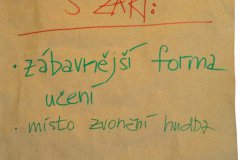 S ZÁŘÍ:
· zábavnější forma
učení
· místo zvonění hudba